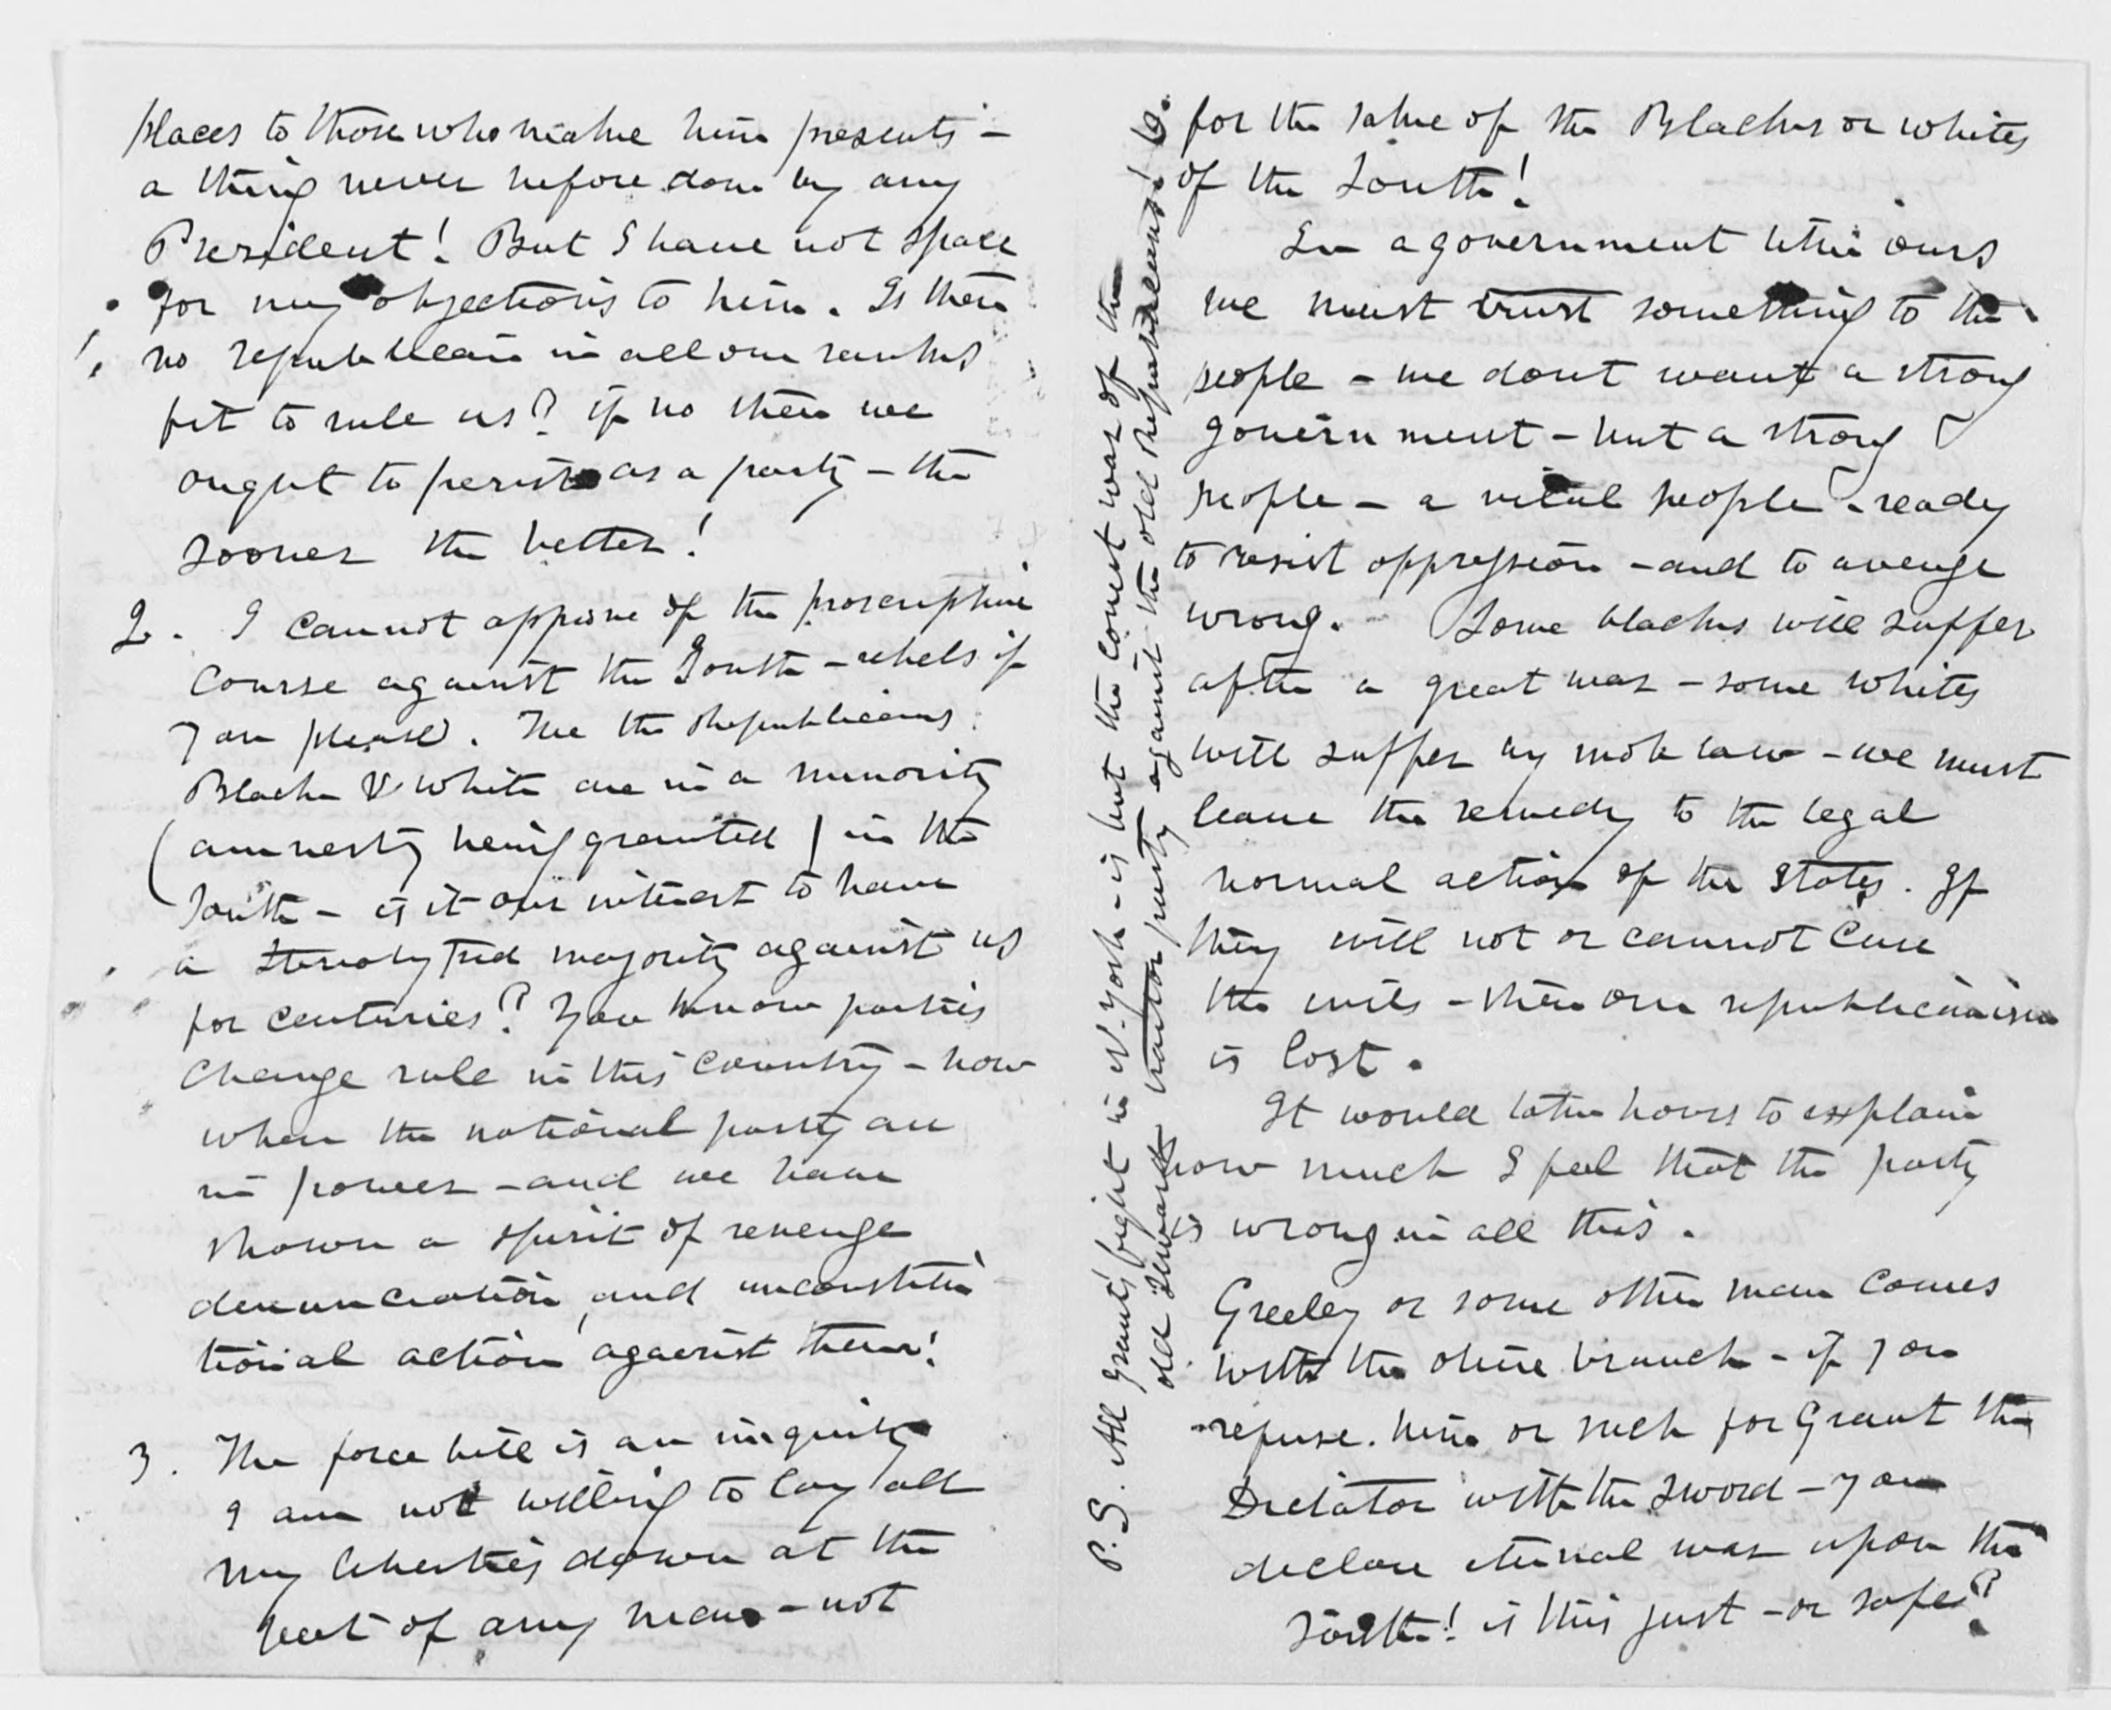 places to those who make him presents -
a thing never before done by any
President! But I have not space
for my objections to him. Is there
no republican in all our ranks
fit to rule us? if no then we
ought to perish as a party - the
sooner the better!
2. I cannot approve of the proscriptive
course against the South - rebels if
you please. The the Republicans
Black & White are in a minority
(amnesty being granted) in the
South - is it our interest to have
a stereotyped majority against us
for centuries? You know parties
change rule in this country - now
when the national party are
in power - and we have
shown a spirit of revenge
denunciation, and unconstitu
tional action against them!
3. The force bill is an iniquity
I am not willing to lay all
my liberties down at the
feet of any man - not
for the sake of the Blacks or whites
of the South!
In a government like ours
we must trust something to the
people - we dont want a strong
government - but a strong
people - a vital people - ready
to resist oppression - and to avenge
wrong. Some blacks will suffer
after a great war - some whites
will suffer by mob law - we must
leave the remedy to the legal
normal action of the States. If
they will not or cannot cure
the evils - then our republicanism
is lost.
It would take hours to explain
how much I feel that the party
is wrong in all this.
Greeley or some other man comes
with the olive branch - if you
refuse him or such for Grant the
Dictator with the sword - you
declare eternal war upon the
South! is this just - or safe?
P.S. All Grant's fight in N. York - is but the conest war of the
old Sewards party against the old Republicans! C.